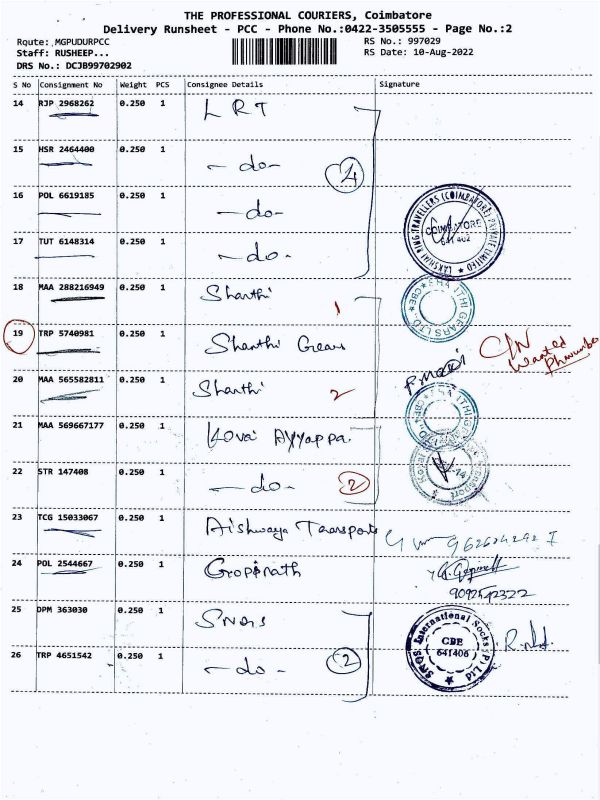 THE PROFESSIONAL COURIERS, Coimbatore
Delivery Runsheet - PCC - Phone No.:0422-3505555 - Page No.:2
Route: MGPUDURPCC
RS No.: 997029
Staff: RUSHEEP...
RS Date: 10-Aug-2022
DRS No.: DCJB99702902
S No Consignment No Weight PCS Consignee Details Signature
14 RJP 2968262 0.250 1 L R T
15 HSR 2464400 0.250 1 - do - 4
16 POL 6619185 0.250 1 - do -
17 TUT 6148314 0.250 1 - do -
LAKSHMI RING TRAVELLERS (COIMBATORE) PRIVATE LIMITED
COIMBATORE
641 402
18 MAA 288216949 0.250 1 Shanthi 1
19 TRP 5740981 0.250 1 Shanthi Gears
C/N
Wanted
20 MAA 565582811 0.250 1 Shanthi 2
21 MAA 569667177 0.250 1 Kovai Ayyappa.
22 STR 147408 0.250 1 - do - 2
23 TCG 15033067 0.250 1 Aishwaya Transports
24 POL 2544667 0.250 1 Gopinath
9092542322
25 DPM 363030 0.250 1 SNQS
26 TRP 4651542 0.250 1 - do - 2
SNQS International Socks (P) Ltd
CBE
641406